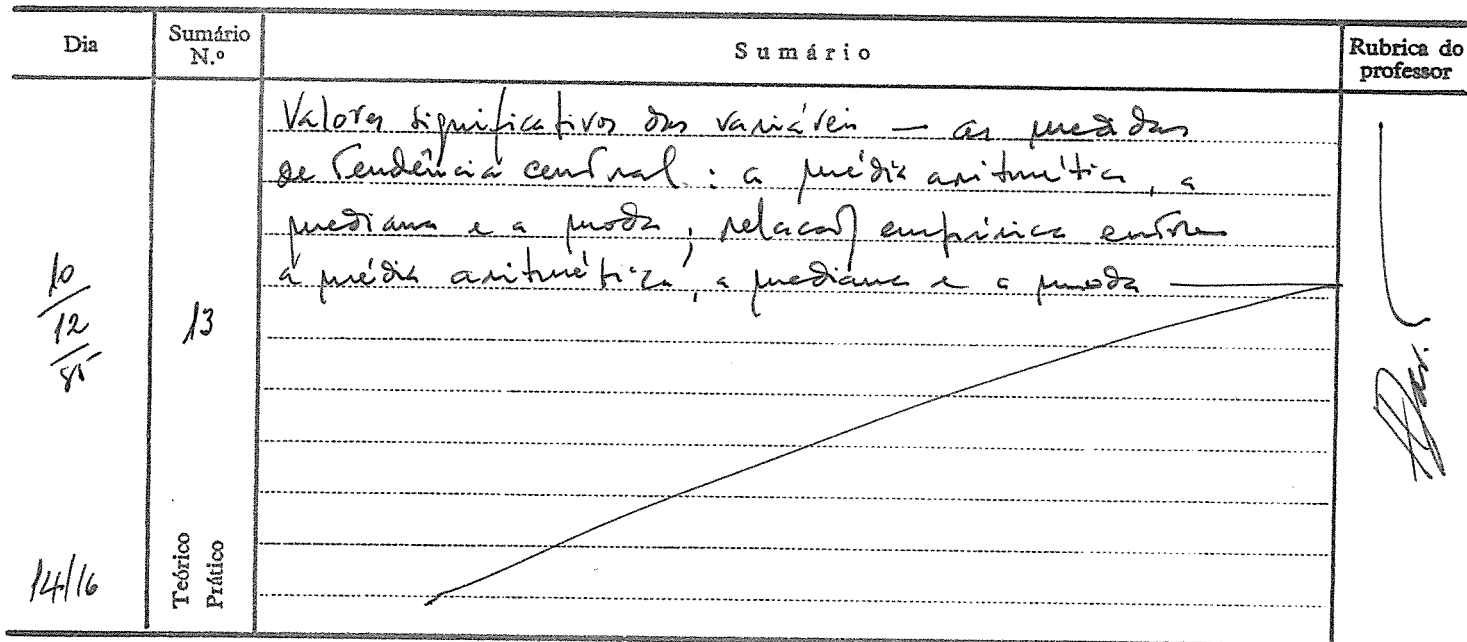 Dia
Sumário N.º
Sumário
Rubrica do professor
10/12/85
13
Valores significativos das variáveis — as medidas
de tendência central : a média aritmética, a
mediana e a moda ; relação empírica entre
a média aritmética, a mediana e a moda
14/16
Teórico
Prático